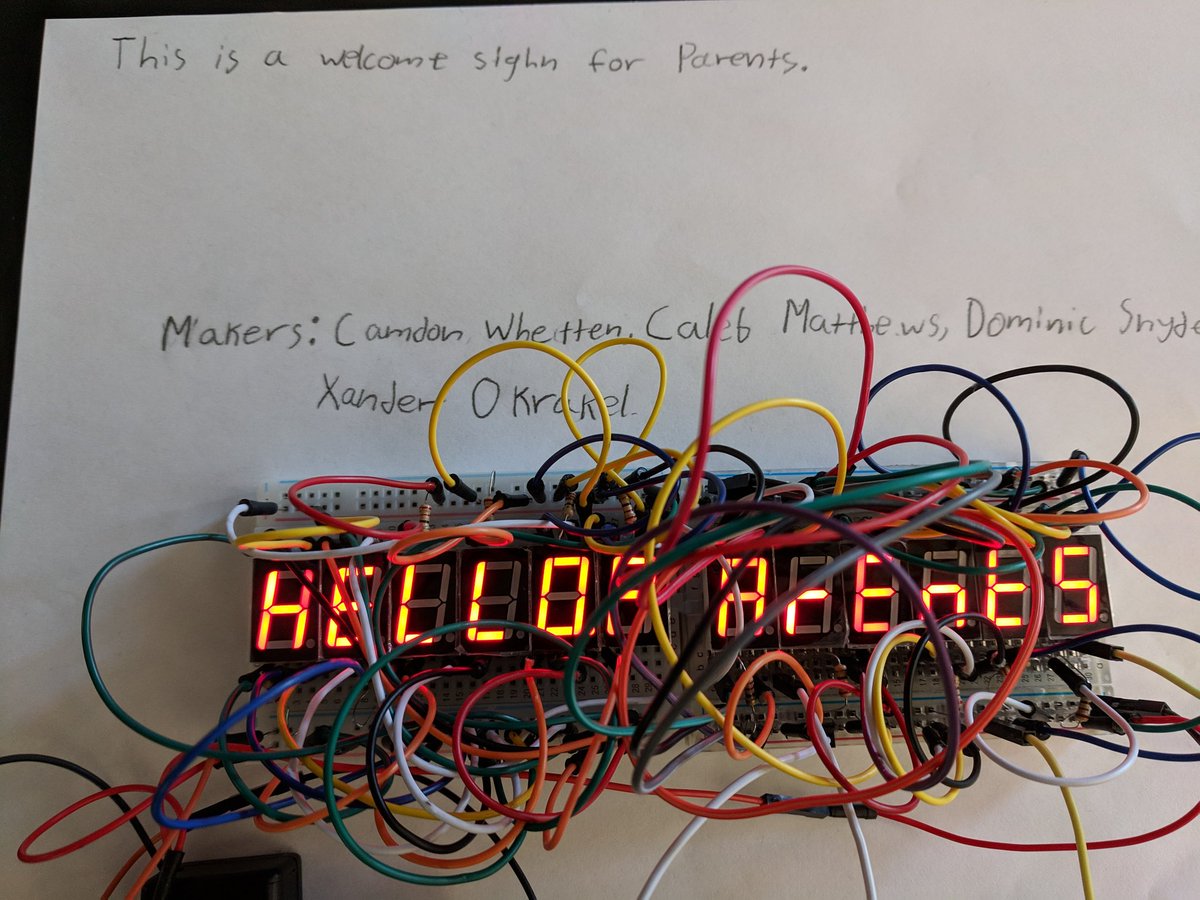 This is a welcome sighn for Parents.
Makers: Camdon Wheitten, Caleb Matthews, Dominic Snyde
Xander OKrakel.
HELLOPArEntS